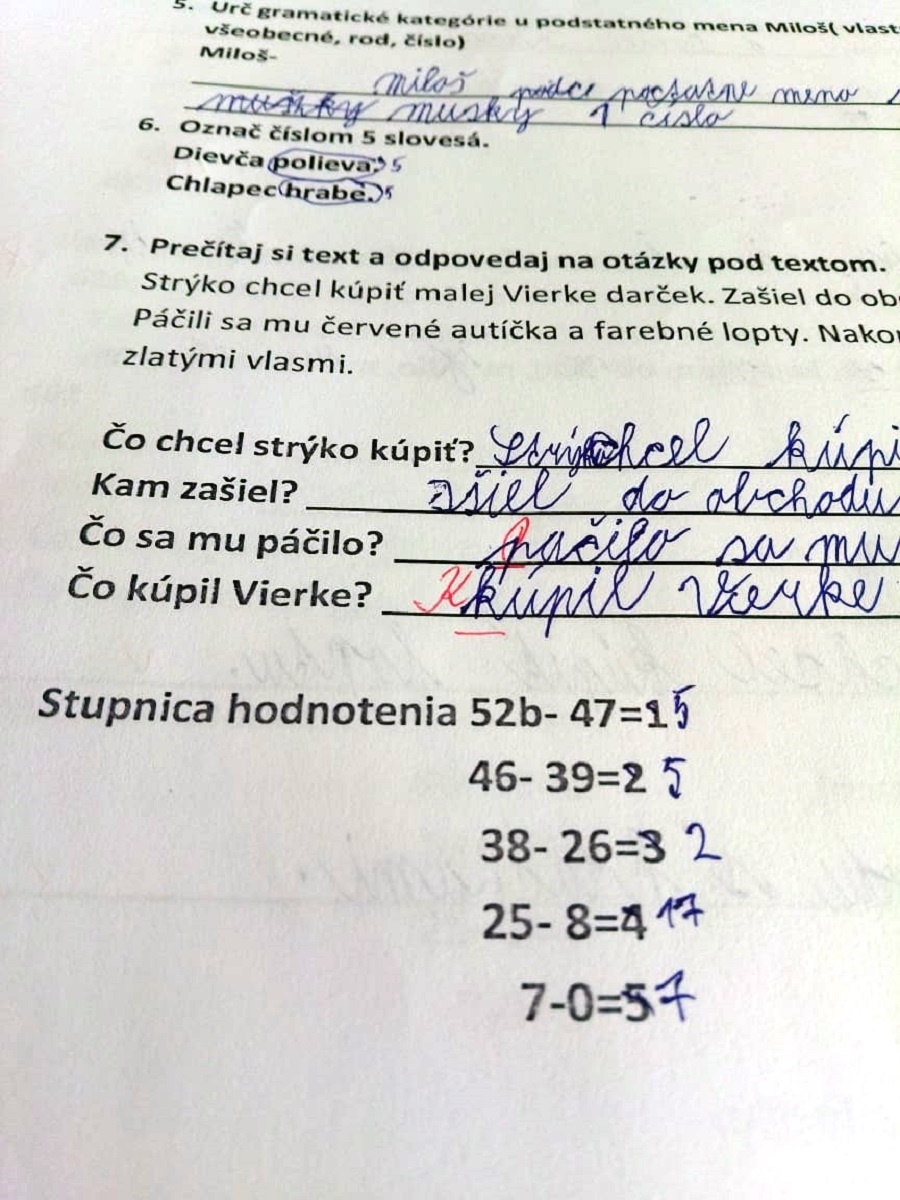 5. Urč gramatické kategórie u podstatného mena Miloš( vlast
všeobecné, rod, číslo)
Miloš-
miloš meno
musky 1 číslo
6. Označ číslom 5 slovesá.
Dievča polieva. 5
Chlapec hrabe. 5
7. Prečítaj si text a odpovedaj na otázky pod textom.
Strýko chcel kúpiť malej Vierke darček. Zašiel do ob
Páčili sa mu červené autíčka a farebné lopty. Nakon
zlatými vlasmi.
Čo chcel strýko kúpiť? chcel kúpi
Kam zašiel? zšiel do obchodu
Čo sa mu páčilo? pačilo sa mu
Čo kúpil Vierke? K kúpil Vierke
Stupnica hodnotenia 52b- 47=1 5
46- 39=2 5
38- 26=3 2
25- 8=4 17
7-0=5 7